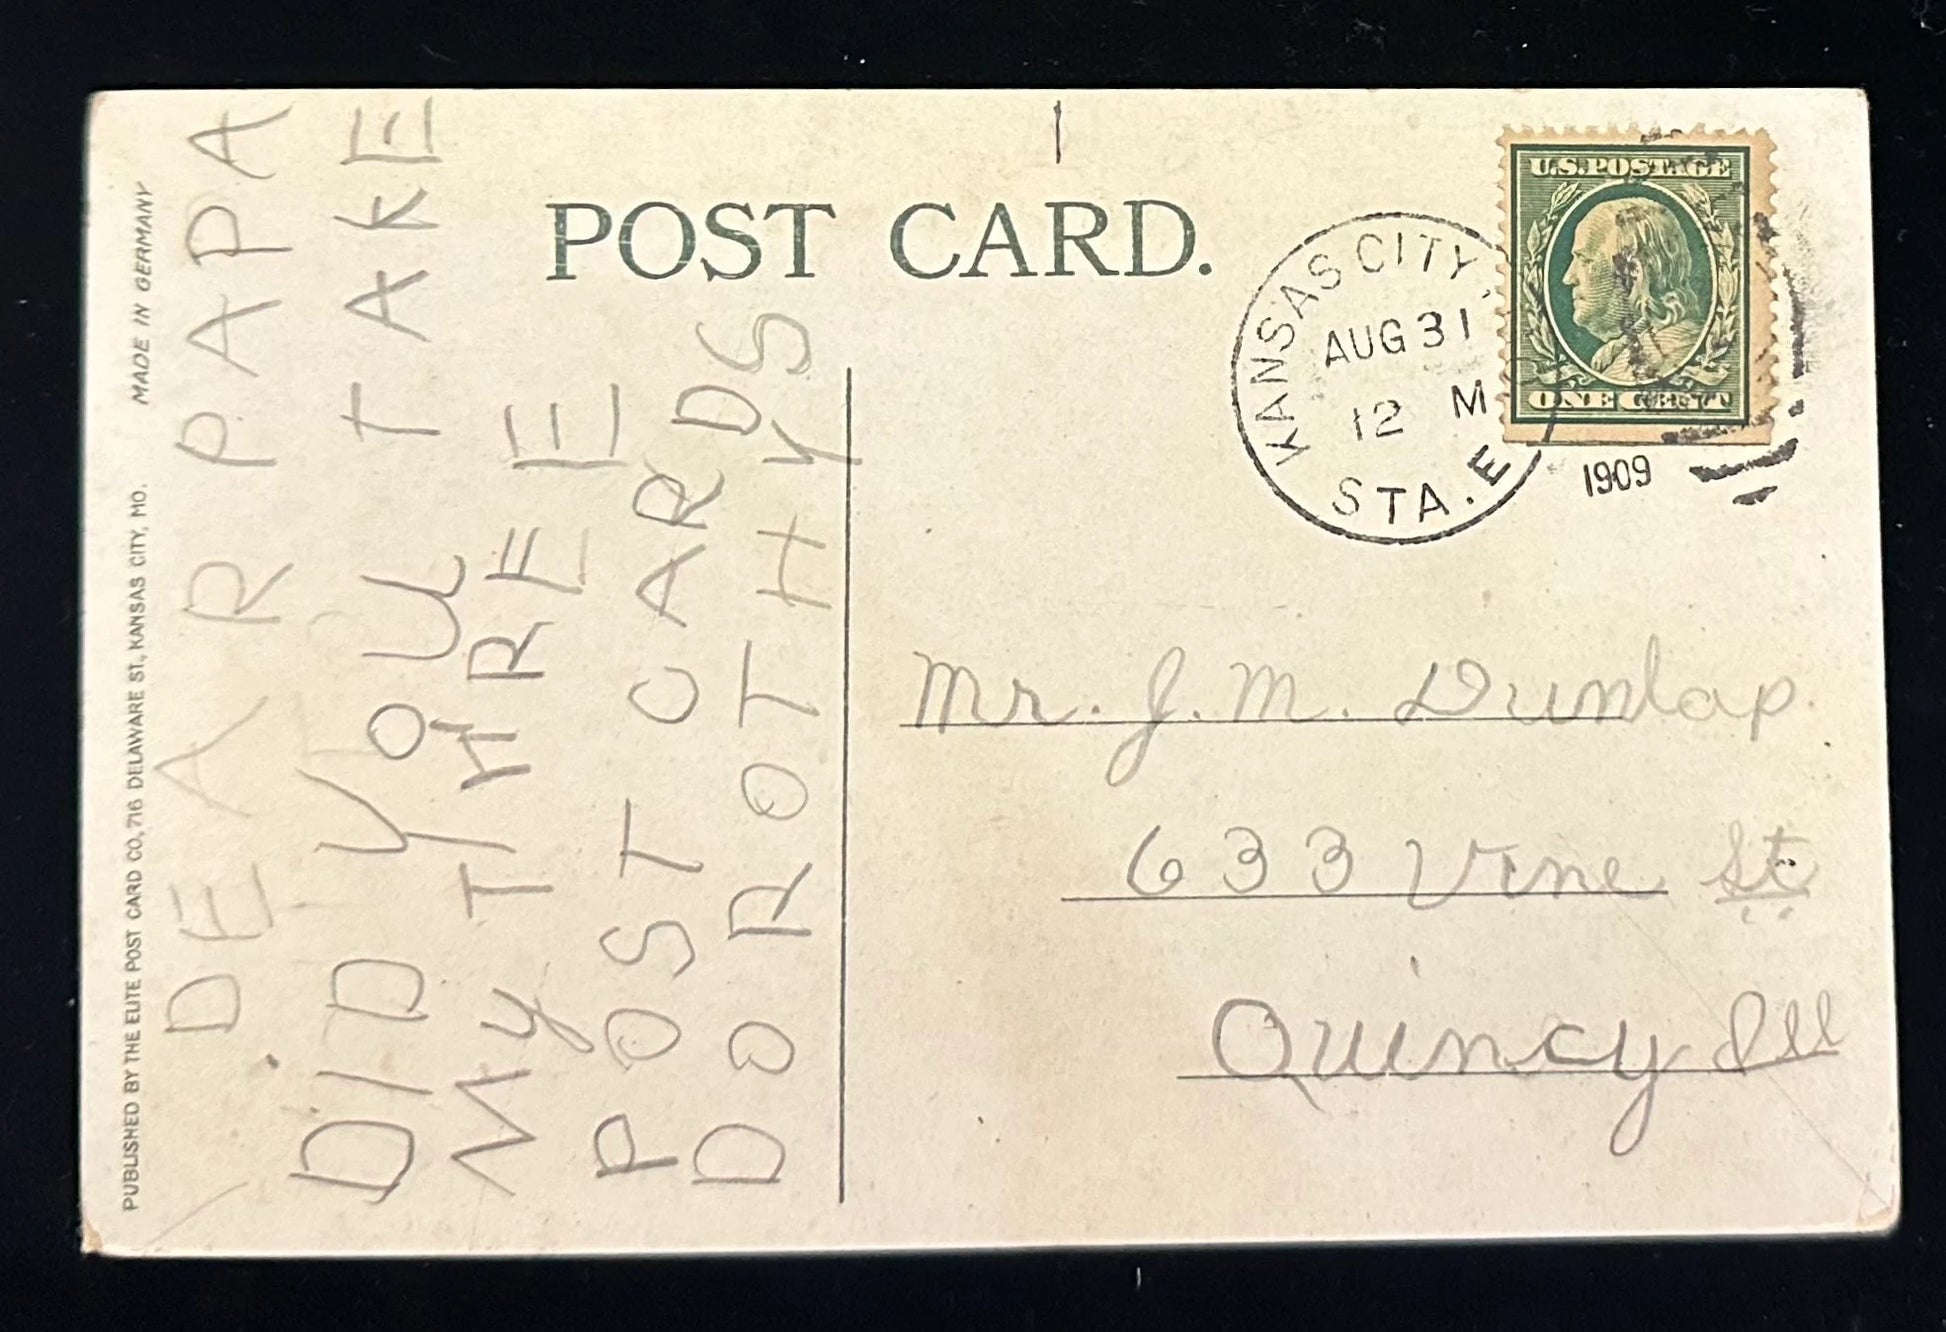 POST CARD.
U.S. POSTAGE
ONE CENT
KANSAS CITY,
AUG 31
12 M
STA. E
1909
DEAR PAPA
DID YOU TAKE
MY THREE
POST CARDS
DOROTHYS
Mr. J. M. Dunlap.
633 Vine St
Quincy Ill
PUBLISHED BY THE ELITE POST CARD CO., 716 DELAWARE ST., KANSAS CITY, MO. MADE IN GERMANY